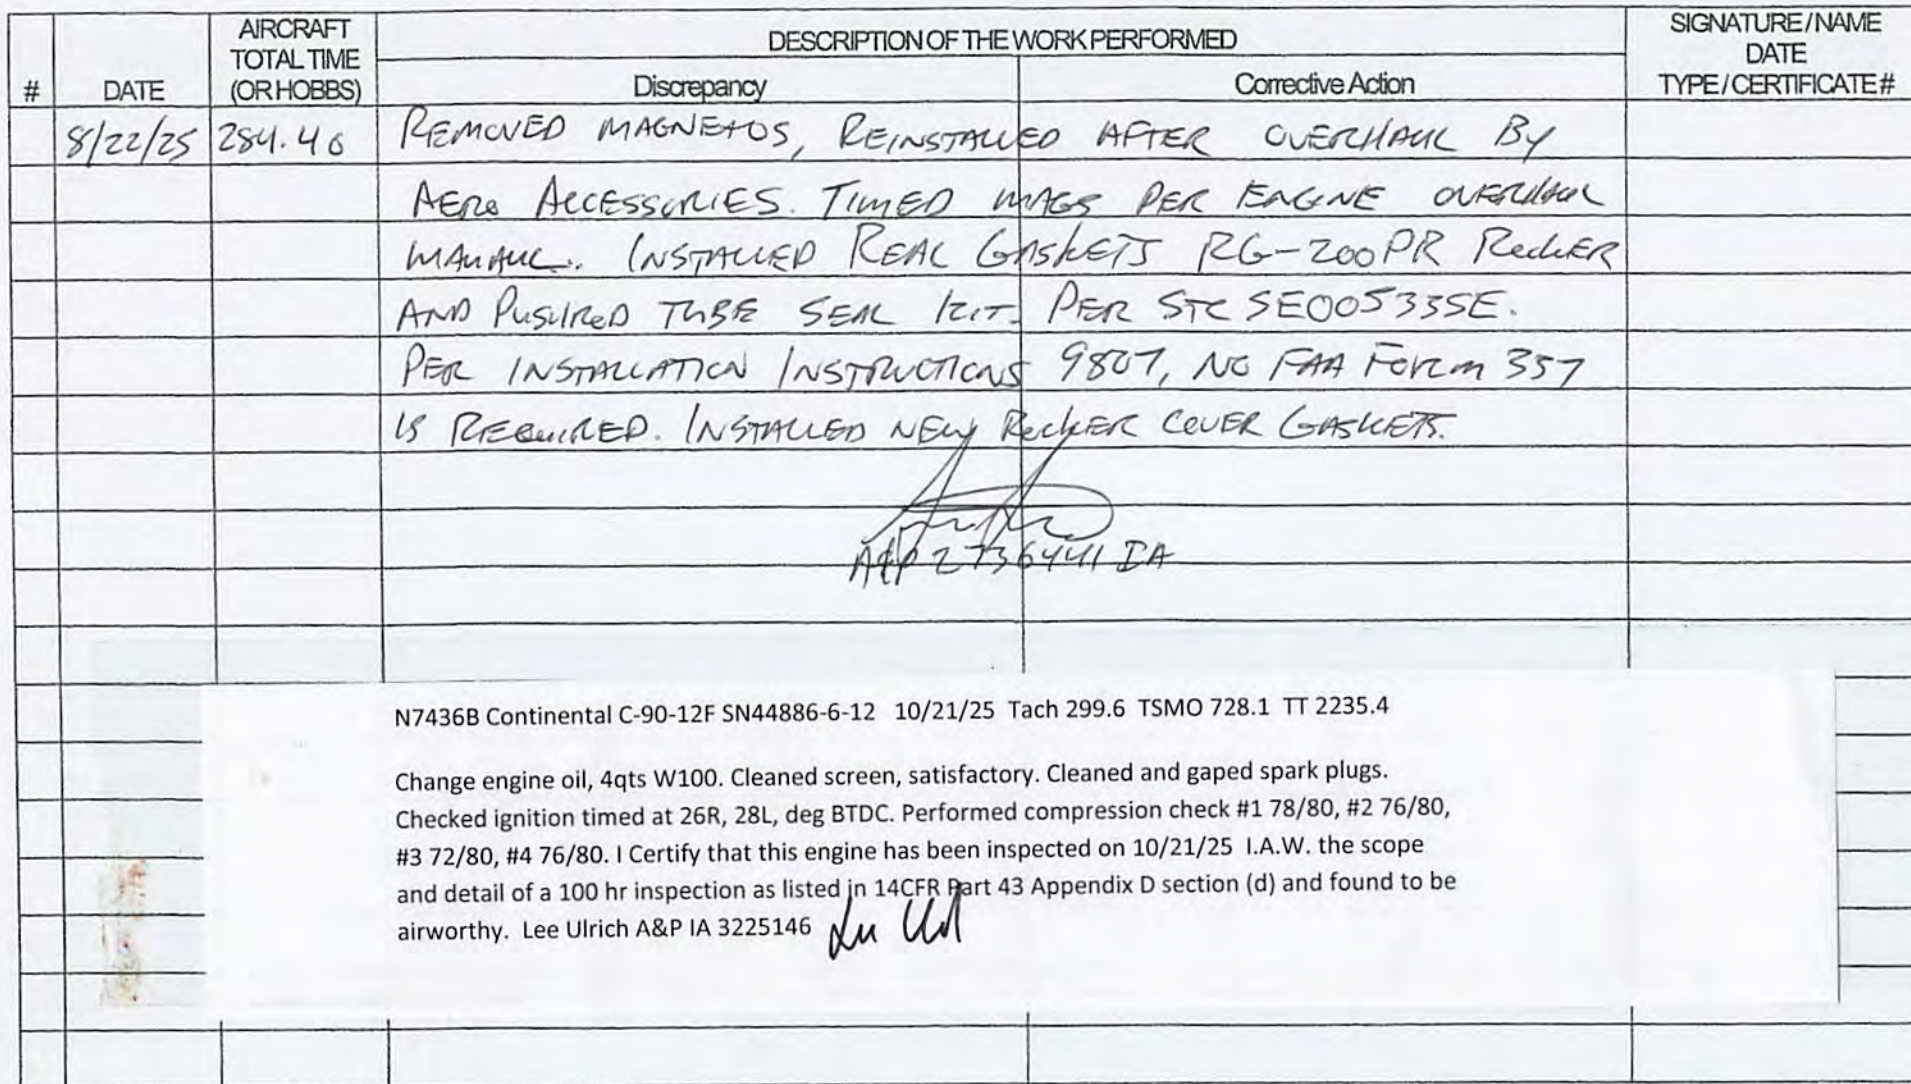 #
DATE
AIRCRAFT
TOTAL TIME
(OR HOBBS)
DESCRIPTION OF THE WORK PERFORMED
Discrepancy
Corrective Action
SIGNATURE/NAME
DATE
TYPE/CERTIFICATE#
8/22/25 284.40 REMOVED MAGNETOS, REINSTALLED AFTER OVERHAUL BY
AERO ACCESSORIES. TIMED MAGS PER ENGINE OVERHAUL
MANAUL. INSTALLED REAL GASKETS RG-200PR ROCKER
AND PUSHROD TUBE SEAL KIT. PER STC SE00533SE.
PER INSTALLATION INSTRUCTIONS 9807, NO FAA FORM 337
IS REQUIRED. INSTALLED NEW ROCKER COVER GASKETS.
A&P 2736441 IA
N7436B Continental C-90-12F SN44886-6-12 10/21/25 Tach 299.6 TSMO 728.1 TT 2235.4
Change engine oil, 4qts W100. Cleaned screen, satisfactory. Cleaned and gaped spark plugs.
Checked ignition timed at 26R, 28L, deg BTDC. Performed compression check #1 78/80, #2 76/80,
#3 72/80, #4 76/80. I Certify that this engine has been inspected on 10/21/25 I.A.W. the scope
and detail of a 100 hr inspection as listed in 14CFR Part 43 Appendix D section (d) and found to be
airworthy. Lee Ulrich A&P IA 3225146